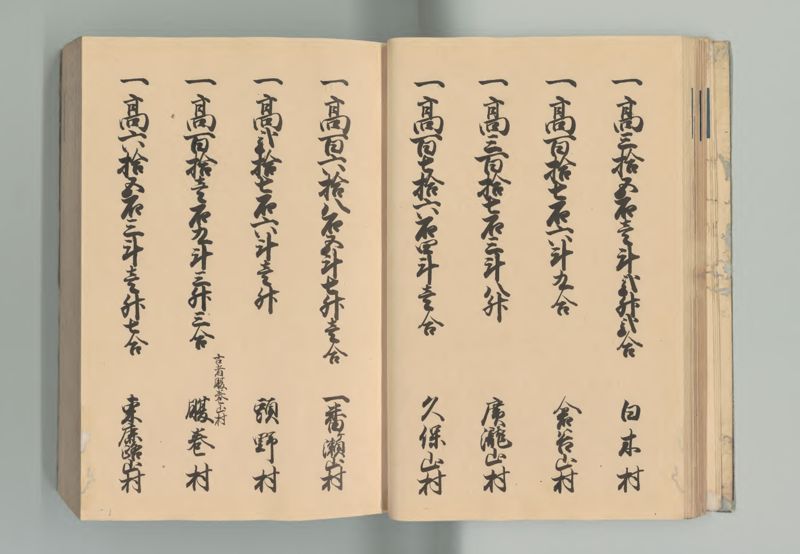 一高三拾五石壱斗弐升弐合 白木村
一高百拾七石六斗九合 倉谷山村
一高三百拾七石三斗八升 廣瀧山村
一高百七拾六石四斗壱合 久保山村
一高百六拾八石五斗七升壱合 一番ヶ瀬山村
一高弐拾七石六斗壱升 頭野村
古者腹巻山村
一高百拾壱石九斗三升三合 腹巻村
一高六拾五石三斗壱升七合 東鹿路山村